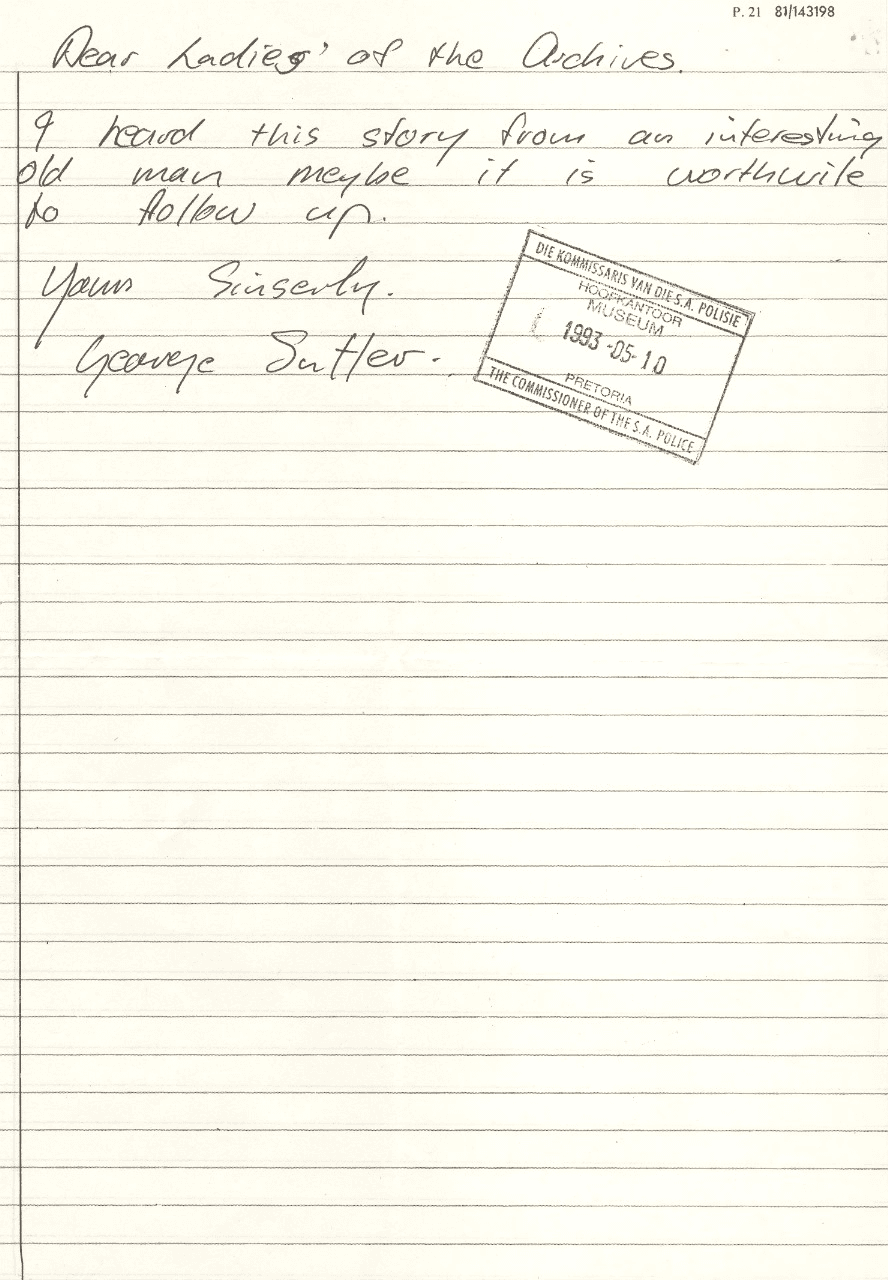 P. 21 81/143198
Dear Ladies' of the Archives.
I heard this story from an interesting
old man meybe it is worthwile
to follow up.
Yours Sinserly.
George Sutler.
DIE KOMMISSARIS VAN DIE S.A. POLISIE
HOOFKANTOOR
MUSEUM
1993 -05- 10
PRETORIA
THE COMMISSIONER OF THE S.A. POLICE